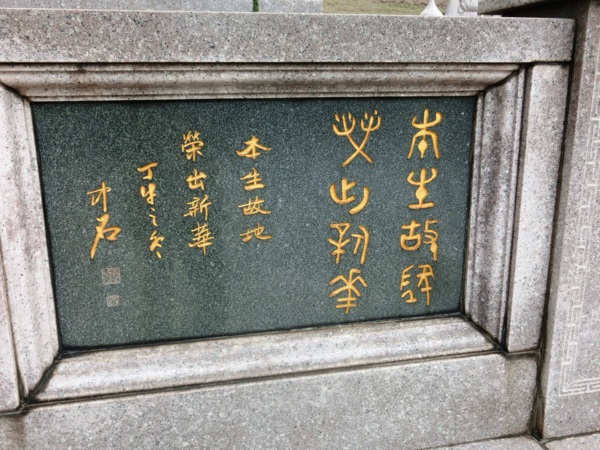 本生故地
榮出新華
本生故地
榮出新華
丁丑之冬
中石